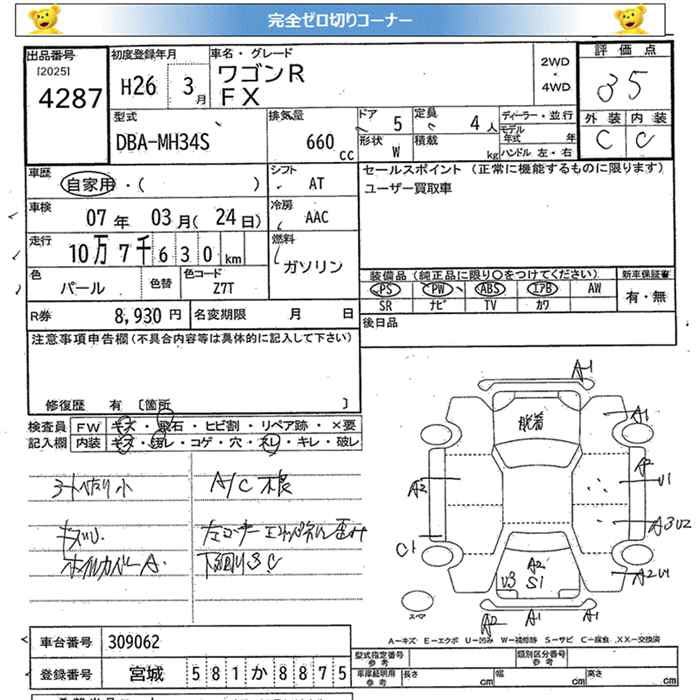 完全ゼロ切りコーナー
出品番号
[2025]
4287
初度登録年月
H26 3月
車名・グレード
ワゴンR
FX
2WD
・
4WD
評価点
35
外装 内装
C C
型式
DBA-MH34S
排気量
660 cc
ドア 5
形状 W
定員 4人
積載 kg
ディーラー・並行
モデル年式 年
ハンドル 左・右
車歴
自家用・( )
シフト
AT
車検
07年 03月(24日)
冷房
AAC
走行
10万7千630km
燃料
ガソリン
色
パール
色替
色コード
Z7T
R券 8,930円
名変期限 月 日
セールスポイント(正常に機能するものに限ります)
ユーザー買取車
装備品(純正品に限り○をつけてください)
PS PW ABS エアB AW
SR ナビ TV カワ
新車保証書
有・無
後日品
注意事項申告欄(不具合内容等は具体的に記入して下さい)
修復歴 有 [箇所 ]
検査員
記入欄
FW キズ・飛石・ヒビ割・リペア跡・×要
内装 キズ・汚レ・コゲ・穴・スレ・キレ・破レ
シートヘタリ小
A/C不良
キズU
左コーナーエンドパネル歪み
ホイルカバーA
下回りS.C
A1
脱着
A1
A2
U1
A2
A3U2
C1
A2
U3
S1
A2U1
スペア
A2
A1
A1
A-キズ E-エクボ U-凹み W-補修跡 S-サビ C-腐食 XX-交換済
車台番号 309062
登録番号 宮城 581か8875
型式指定番号
参考
類別区分番号
参考
車庫証明用
参考
長さ cm
幅 cm
高さ cm